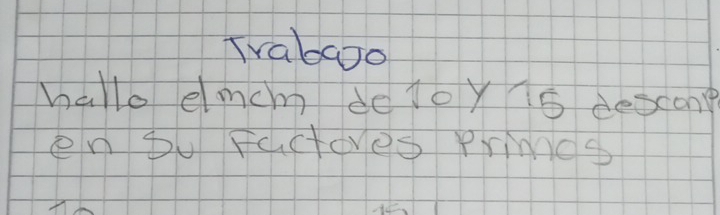 Trabajo
hallo elmcm de 10 y 15 descomp
en su Factores Primos